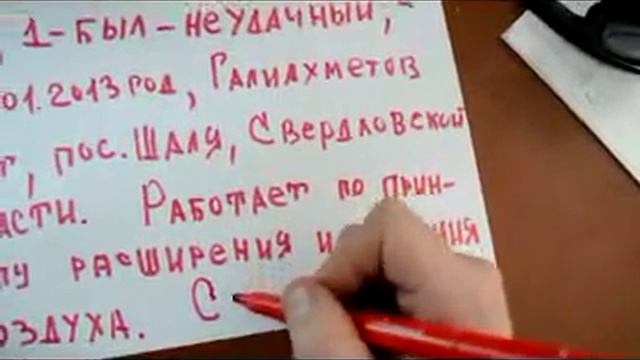 1-БЫЛ-НЕУДАЧНЫЙ,
01.2013 ГОД, ГАЛИАХМЕТОВ
, ПОС. ШАЛЯ, СВЕРДЛОВСКОЙ
АСТИ. РАБОТАЕТ ПО ПРИН-
ПУ РАСШИРЕНИЯ И НИЯ
ОЗДУХА. С